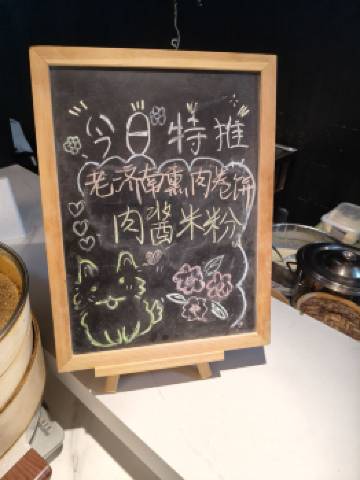 今日特推
老济南熏肉卷饼
肉酱米粉